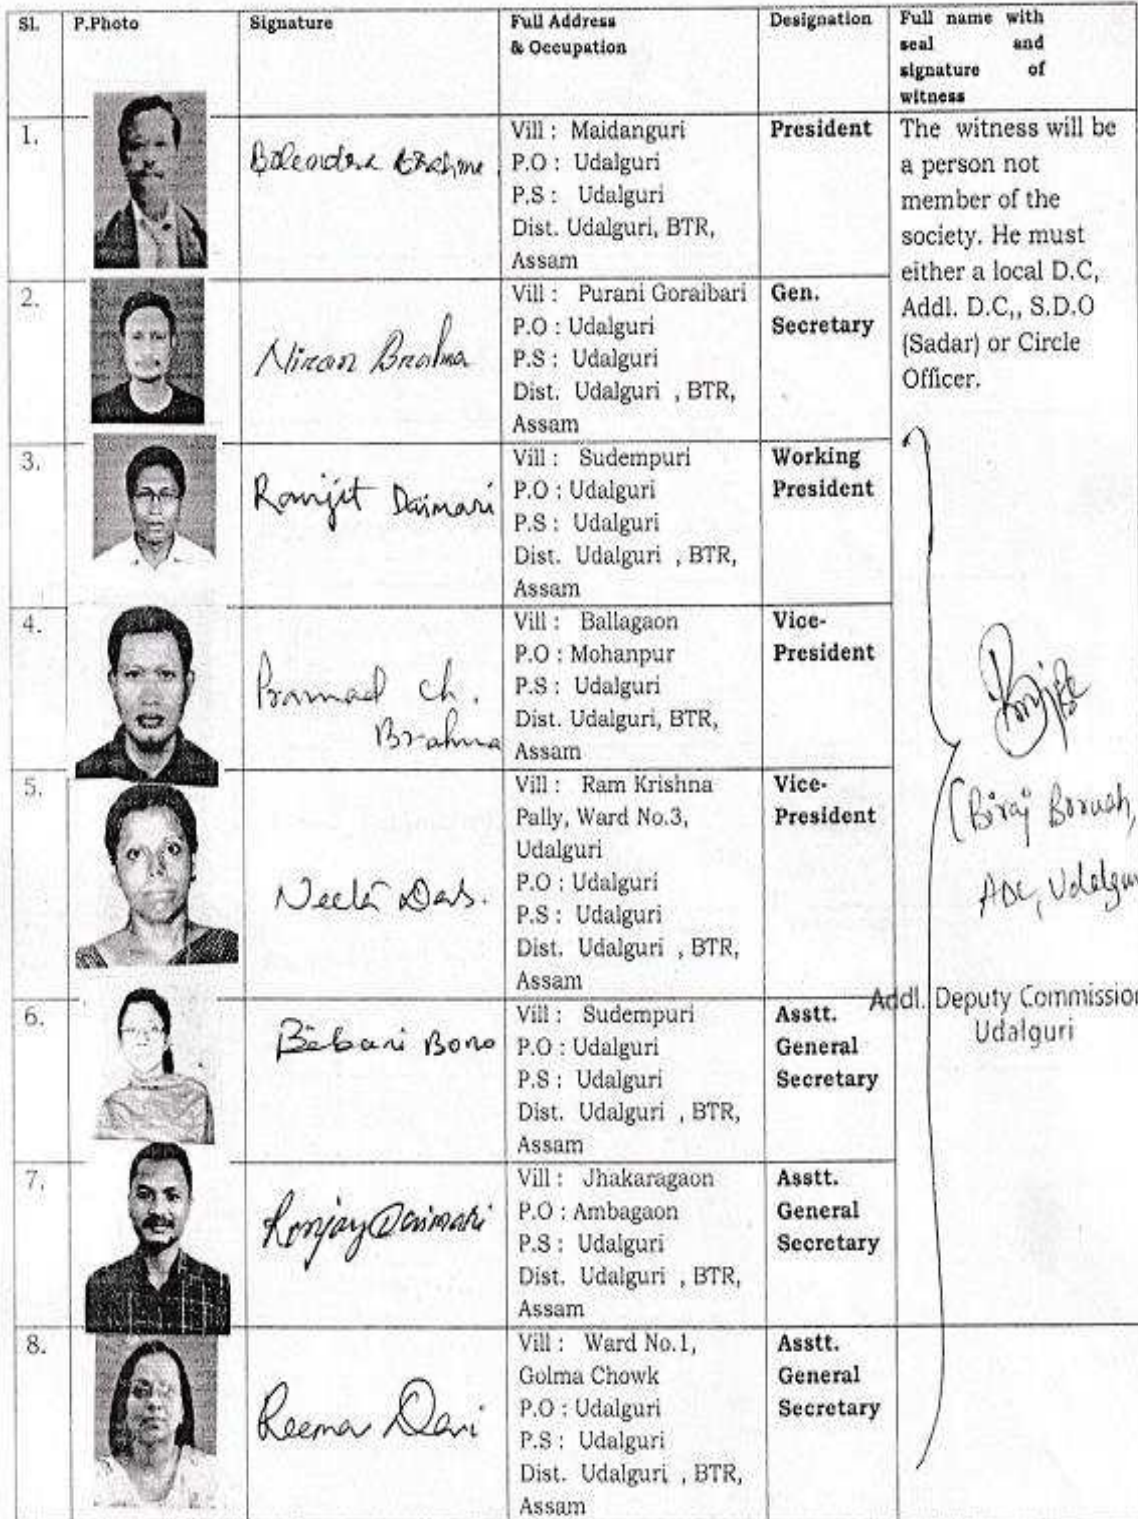 Sl. P.Photo Signature Full Address & Occupation Designation Full name with seal and signature of witness
1.
Brahma
Vill : Maidanguri
P.O : Udalguri
P.S : Udalguri
Dist. Udalguri, BTR,
Assam
President
The witness will be
a person not
member of the
society. He must
either a local D.C,
Addl. D.C,, S.D.O
(Sadar) or Circle
Officer.
2.
Niran Brahma
Vill : Purani Goraibari
P.O : Udalguri
P.S : Udalguri
Dist. Udalguri , BTR,
Assam
Gen.
Secretary
3.
Ranjit Daimari
Vill : Sudempuri
P.O : Udalguri
P.S : Udalguri
Dist. Udalguri , BTR,
Assam
Working
President
4.
Pramad Ch.
Brahma
Vill : Ballagaon
P.O : Mohanpur
P.S : Udalguri
Dist. Udalguri, BTR,
Assam
Vice-
President
5.
Neeta Das.
Vill : Ram Krishna
Pally, Ward No.3,
Udalguri
P.O : Udalguri
P.S : Udalguri
Dist. Udalguri , BTR,
Assam
Vice-
President
(Biraj Boruah,
ADC, Udalguri
Addl. Deputy Commission
Udalguri
6.
Bibari Boro
Vill : Sudempuri
P.O : Udalguri
P.S : Udalguri
Dist. Udalguri , BTR,
Assam
Asstt.
General
Secretary
7.
Ronjay Daimari
Vill : Jhakaragaon
P.O : Ambagaon
P.S : Udalguri
Dist. Udalguri , BTR,
Assam
Asstt.
General
Secretary
8.
Reema
Vill : Ward No.1,
Golma Chowk
P.O : Udalguri
P.S : Udalguri
Dist. Udalguri , BTR,
Assam
Asstt.
General
Secretary